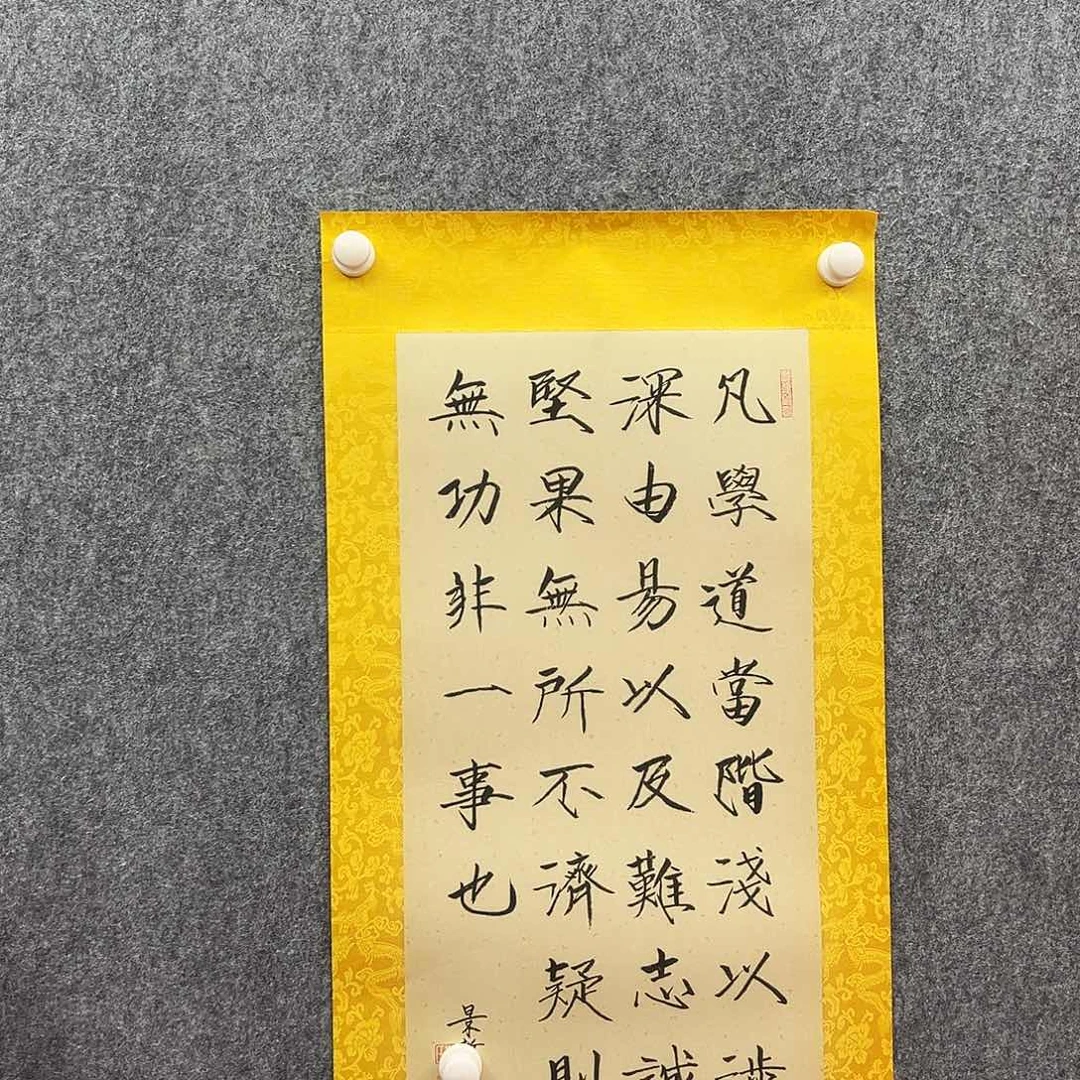 凡學道當階淺以涉
深由易以及難志誠
堅果無所不濟疑則
無功非一事也
景